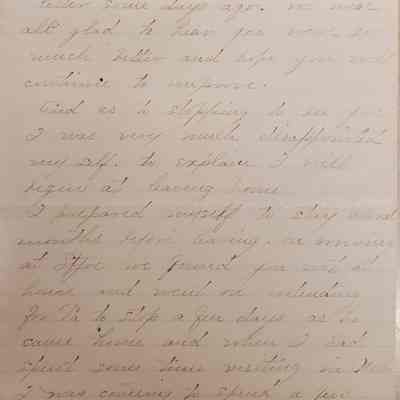 letter some days ago. we were
all glad to hear you were so
much better and hope you will
continue to improve.
And as to stopping to see you
I was very much disappointed
my self. to explain I will
begin at leaving home
I prepared myself to stay
months before leaving. on
at we found you not at
home and went on intending
for Pa to stop a few days as he
came home and when I had
spent some time visiting in
I was coming to spend a few